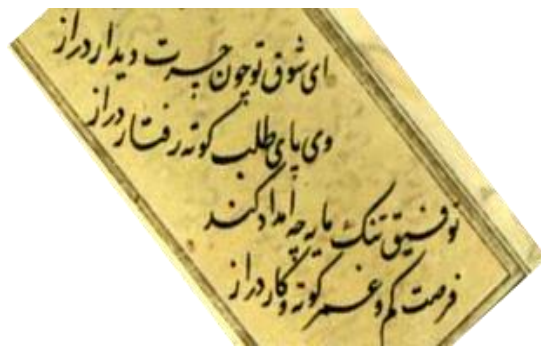 ای شوق تو چون حسرت دیدار دراز
وی پای طلب کوته رفتار دراز
توفیق تنک مایه چه امداد کند
فرصت کم و عمر کوته و کار دراز